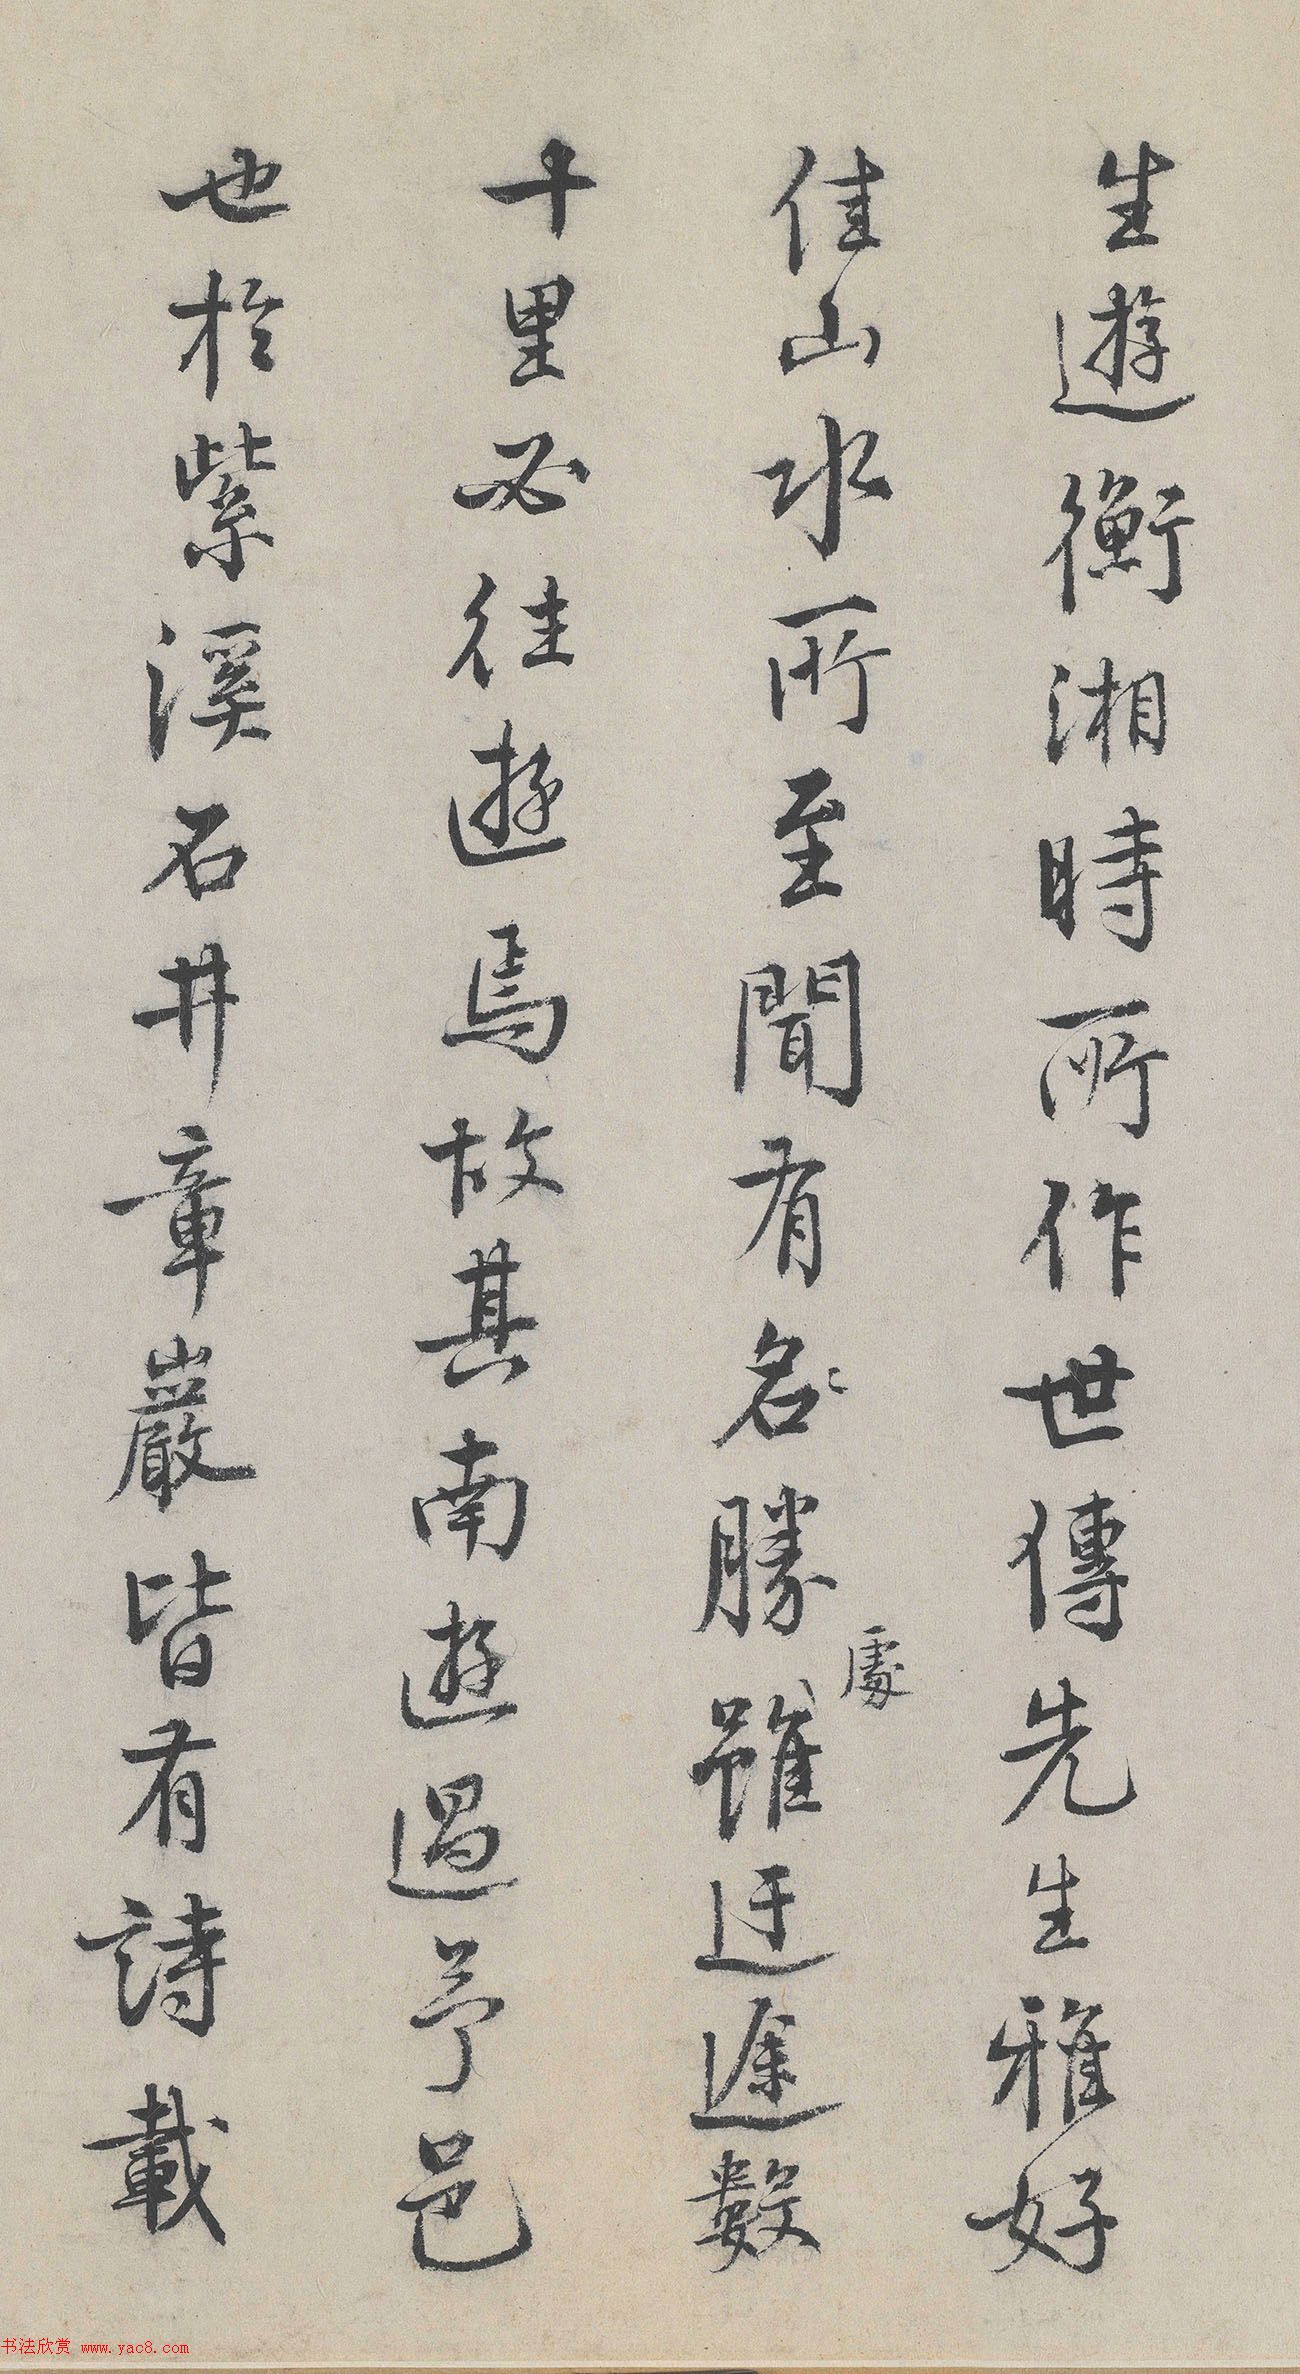 生遊衡湘時所作世傳先生雅好
佳山水所至聞有名勝處雖迂途數
十里必往遊焉故其南遊過予邑
也於紫溪石井章巖皆有詩載
书法欣赏 www.yac8.com